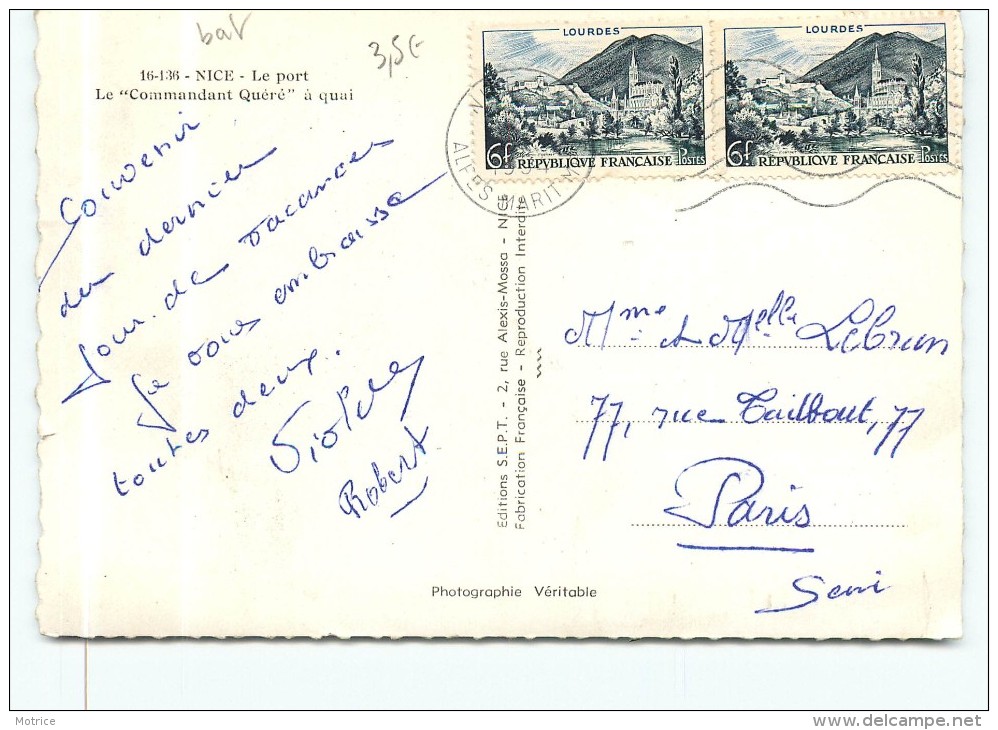 bat
3,5€
16-136 - NICE - Le port
Le "Commandant Quéré" à quai
Souvenir
du dernier
jour de vacances
Je vous embrasse
toutes deux.
Robert
LOURDES
6f RÉPVBLIQVE FRANÇAISE POSTES
LOURDES
6f RÉPVBLIQVE FRANÇAISE POSTES
ALPES MARITMES
Editions S.E.P.T. - 2, rue Alexis-Mossa - NICE
Fabrication Française - Reproduction Interdite
Mme et Melle Lebrun
77, rue Taitbout, 77
Paris
Seine
Photographie Véritable
Motrice
delcampe.net